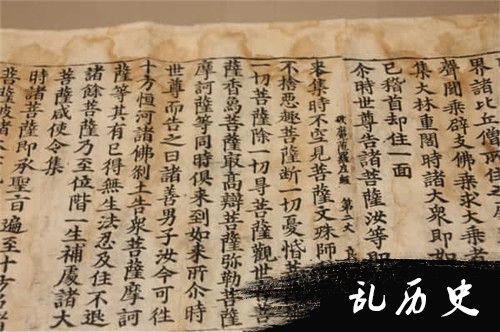 界諸比丘僧所住
聲聞乘辟支佛乘求大乘者
集大林重閣時諸大衆即如
已稽首却住一面
尒時世尊告諸菩薩汝等即
第二大
来集時不空見菩薩文殊師
不捨惡趣菩薩斷一切憂惱菩
一切菩薩除一切㝵菩薩觀世音菩
薩香象菩薩冣高辯菩薩弥勒菩薩
摩訶薩等同時俱来到如来所尒時
世尊而告之曰諸善男子汝今可往
十方恒河諸佛刹土告衆菩薩摩訶
薩等其有已得無生法忍及住不退
諸餘菩薩乃至位階一生補處諸大
菩薩咸使令集
時諸菩薩即承聖百遍至十方
菩薩
乱历史